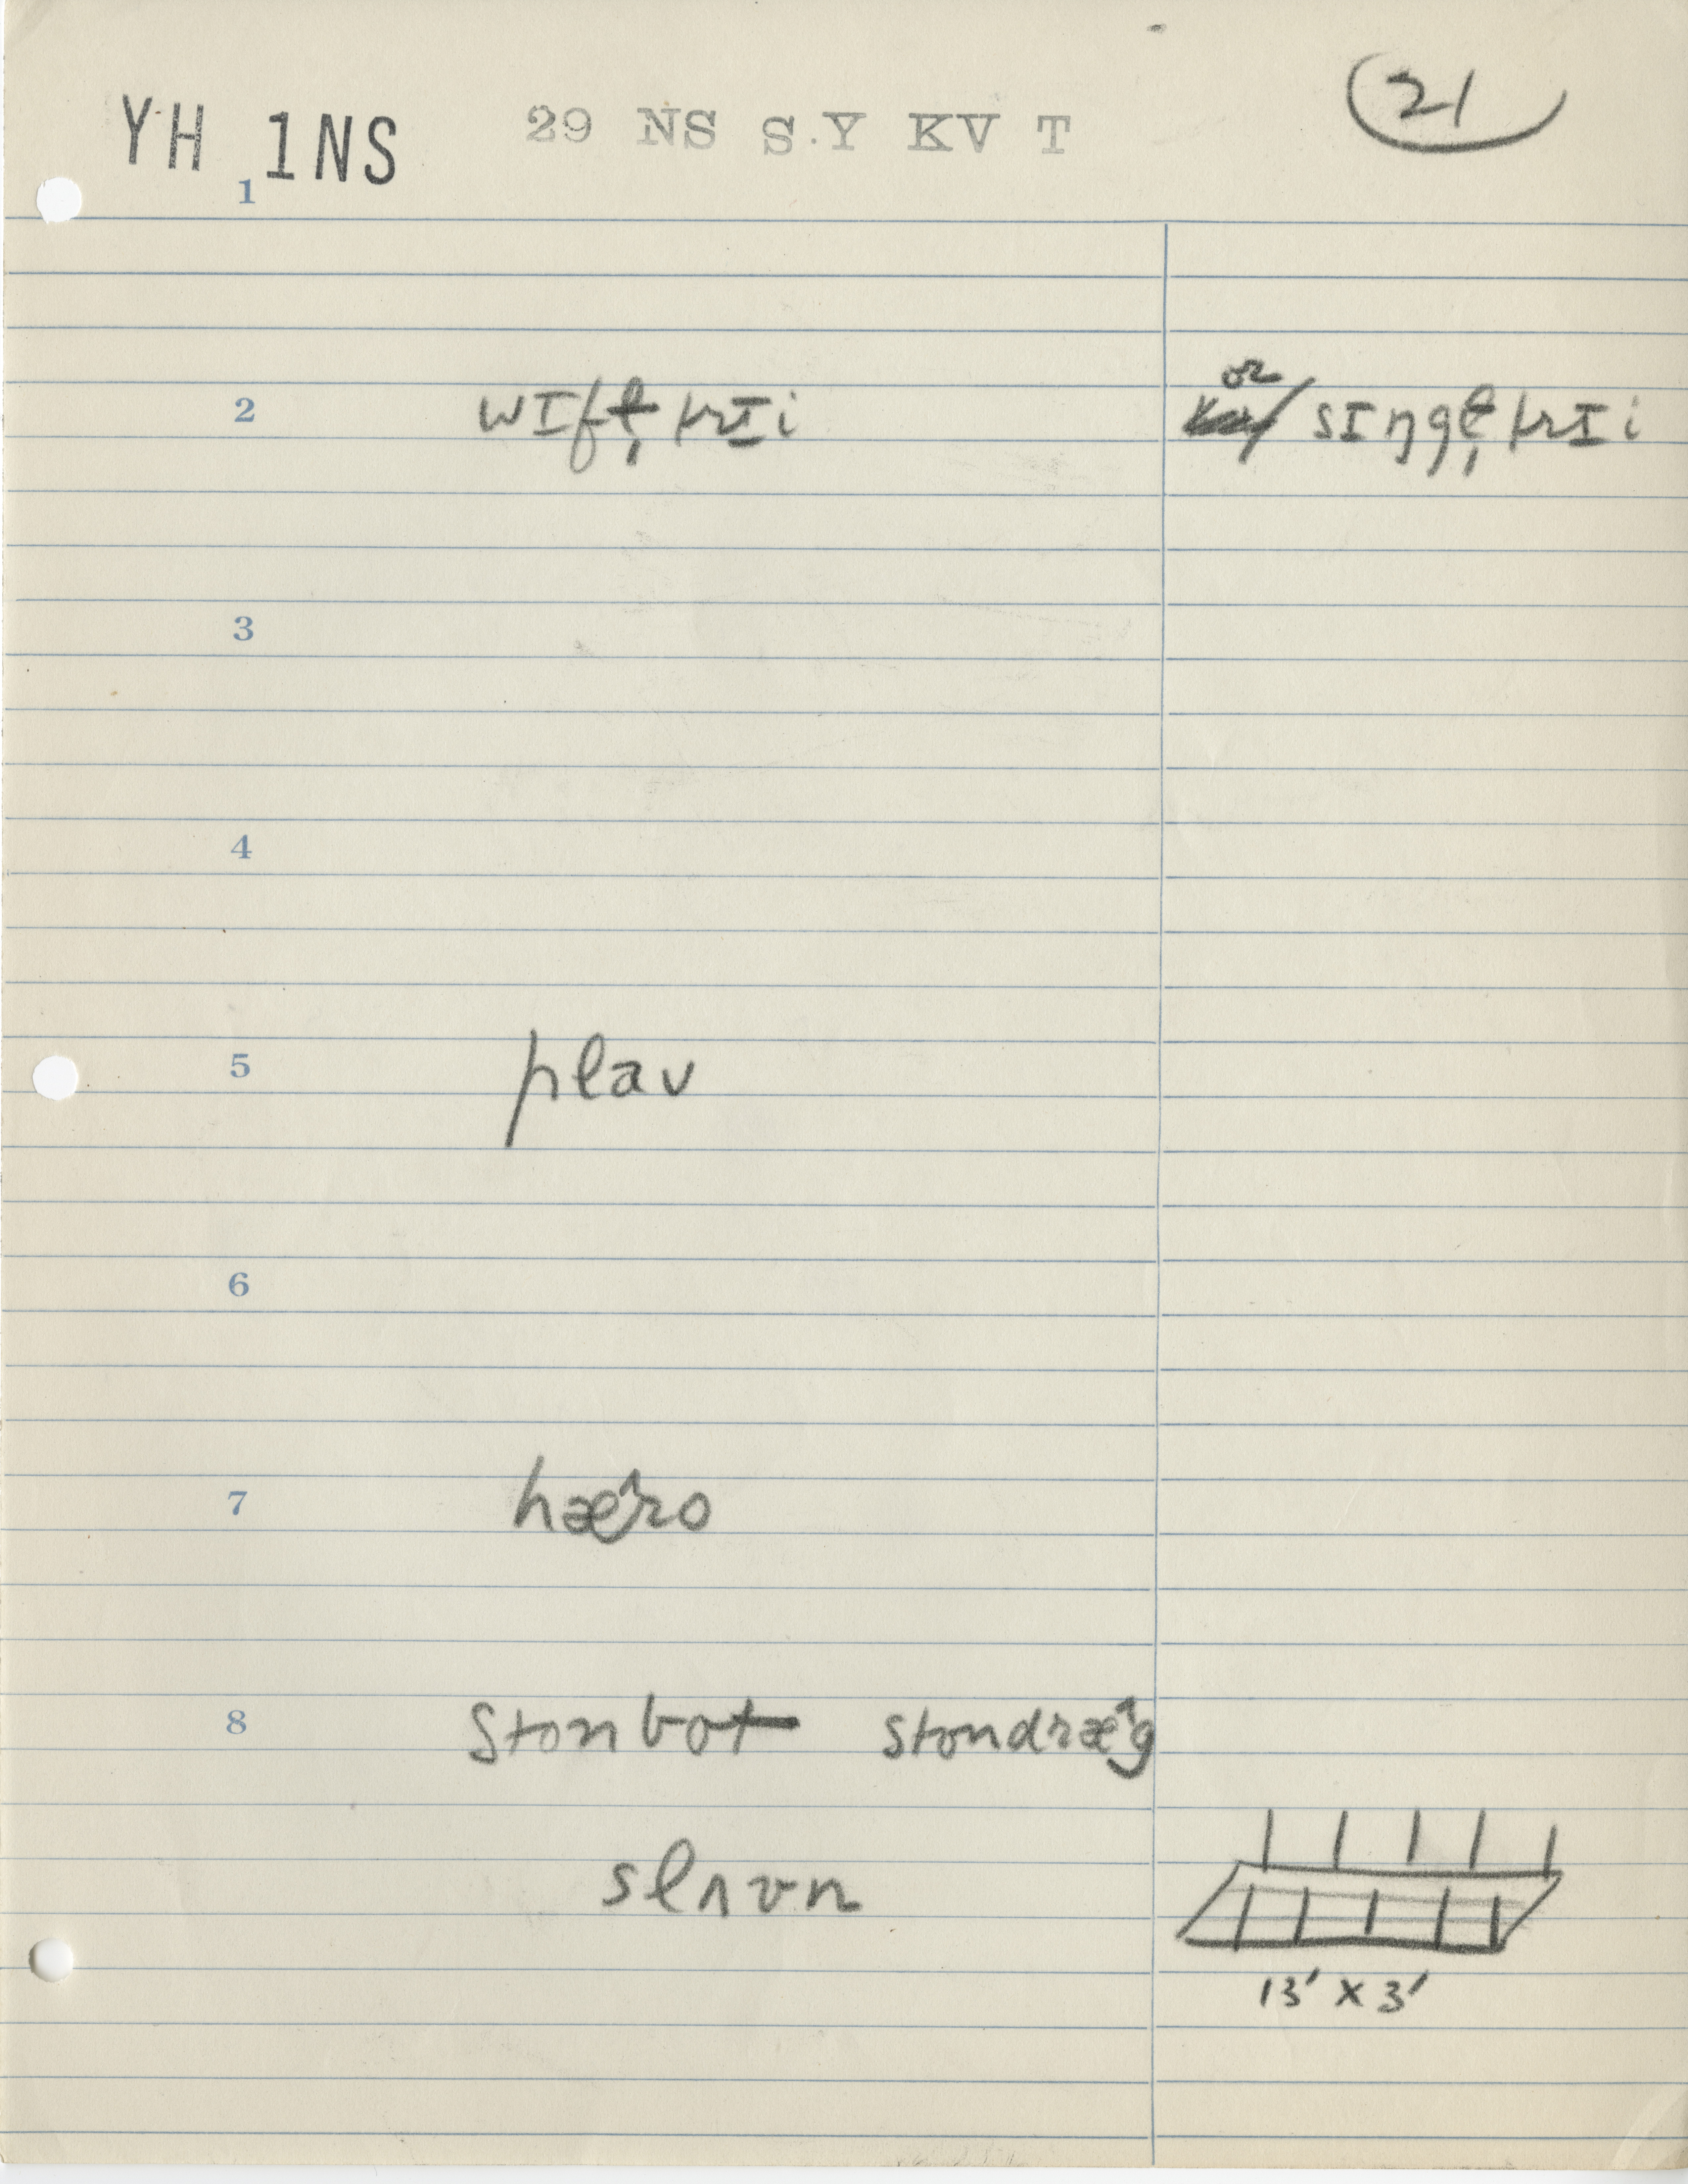 YH 1NS 29 NS S.Y KV T 21
1
2 wɪfl̩trɪi or sɪŋgl̩trɪi
3
4
5 plaʊ
6
7 hæ^ro
8 stonbot stondræ^g
slʌvn
13' x 3'